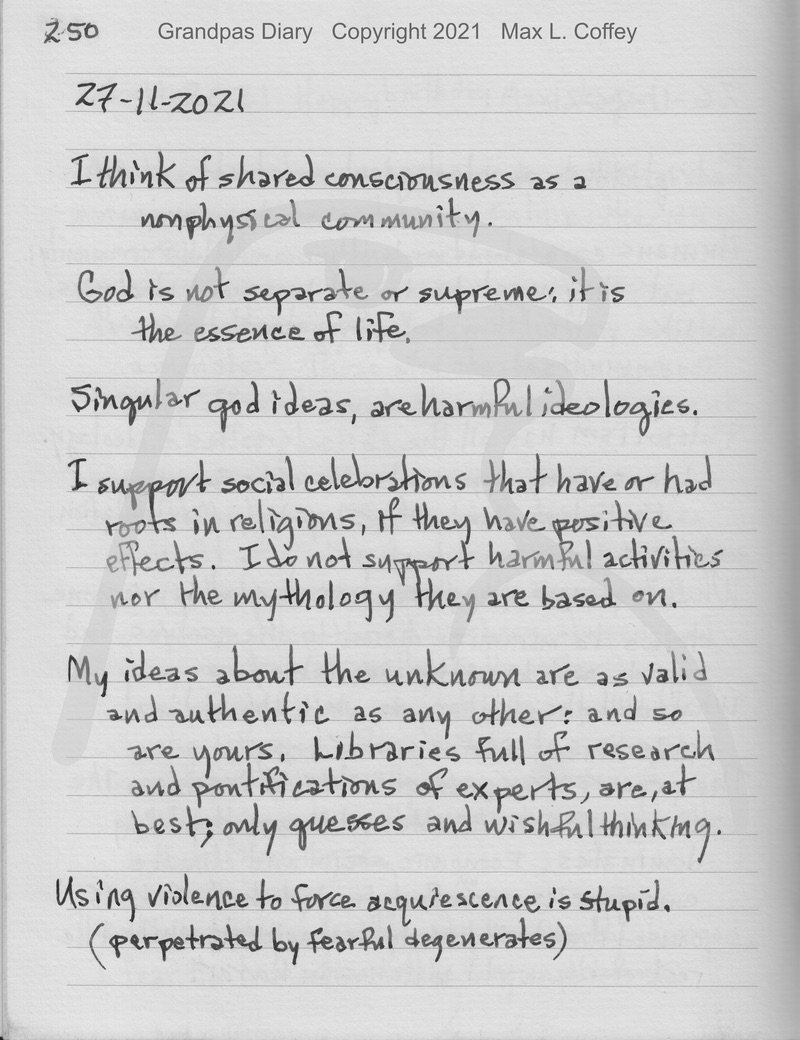 250 Grandpas Diary Copyright 2021 Max L. Coffey
27-11-2021
I think of shared consciousness as a
nonphysical community.
God is not separate or supreme: it is
the essence of life.
Singular god ideas, are harmful ideologies.
I support social celebrations that have or had
roots in religions, if they have positive
effects. I do not support harmful activities
nor the mythology they are based on.
My ideas about the unknown are as valid
and authentic as any other: and so
are yours. Libraries full of research
and pontifications of experts, are, at
best; only guesses and wishful thinking.
Using violence to force acquiescence is stupid.
(perpetrated by fearful degenerates)